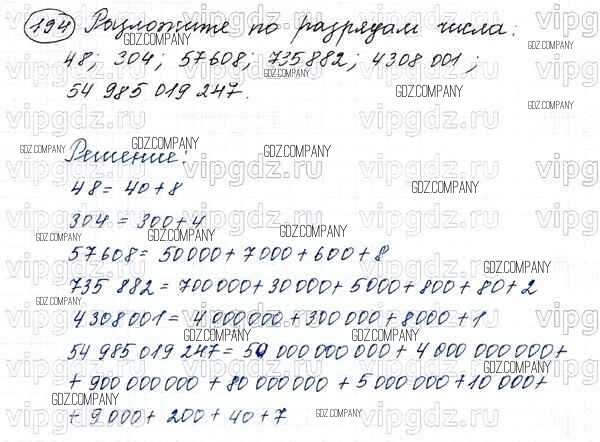 194 Разложите по разрядам числа:
48; 304; 57608; 735882; 4308 001;
54 985 019 247.
Решение:
48 = 40 + 8
304 = 300 + 4
57608 = 50000 + 7000 + 600 + 8
735 882 = 700000 + 30000 + 5000 + 800 + 80 + 2
4308001 = 4 000000 + 300 000 + 8000 + 1
54 985 019 247 = 50 000 000 000 + 4 000 000 000 +
+ 900 000 000 + 80 000 000 + 5 000 000 + 10 000 +
+ 9 000 + 200 + 40 + 7